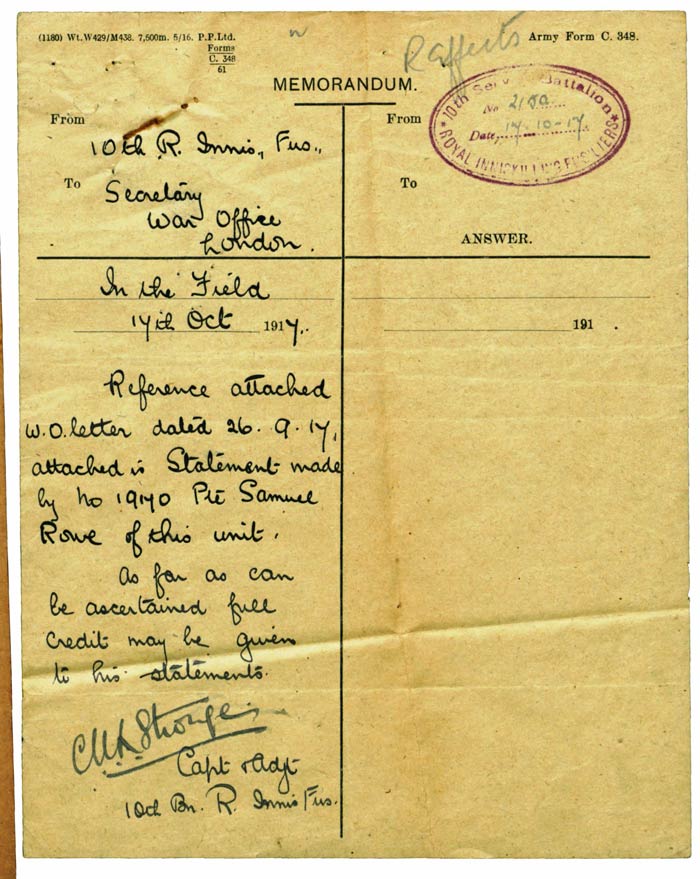 (1180) Wt.W429/M438. 7,500m. 5/16. P.P.Ltd.
Forms
C. 348
61
Army Form C. 348.
MEMORANDUM.
From
10th R. Innis., Fus.,
To
Secretary
War Office
London.
In the Field
17th Oct 1917.
Reference attached
W.O. letter dated 26.9.17,
attached is Statement made
by No 19170 Pte Samuel
Rowe of this unit.
As far as can
be ascertained full
credit may be given
to his statements.
Capt & Adjt
10th Bn. R. Innis Fus.
From
10th Serv Battalion
No
Date, 17-10-17
ROYAL INNISKILLING FUSILIERS
To
ANSWER.
191 .